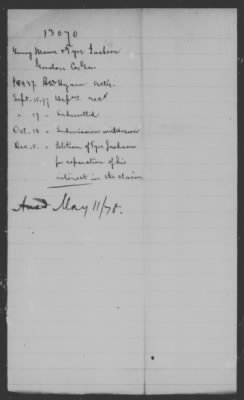 13070
Henry Mann & Tyre Jackson
Gordon Co. Ga.
$1437. BW Hyam atty.
Sept. 15. 77 Dep'ns rec'd
" 17 - Submitted
Oct. 13 - Submission withdrawn
Dec. 5. - Petition of Tyre Jackson
for separation of his
interest in the claim
Ansd May 11/78.